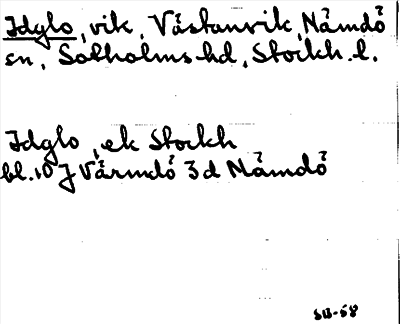 Idglo, vik, Västanvik, Nämdö
sn, Sotholms hd, Stockh. l.
Idglo, ek Stockh
bl. 10 J Värmdö 3 d Nämdö
SB-58